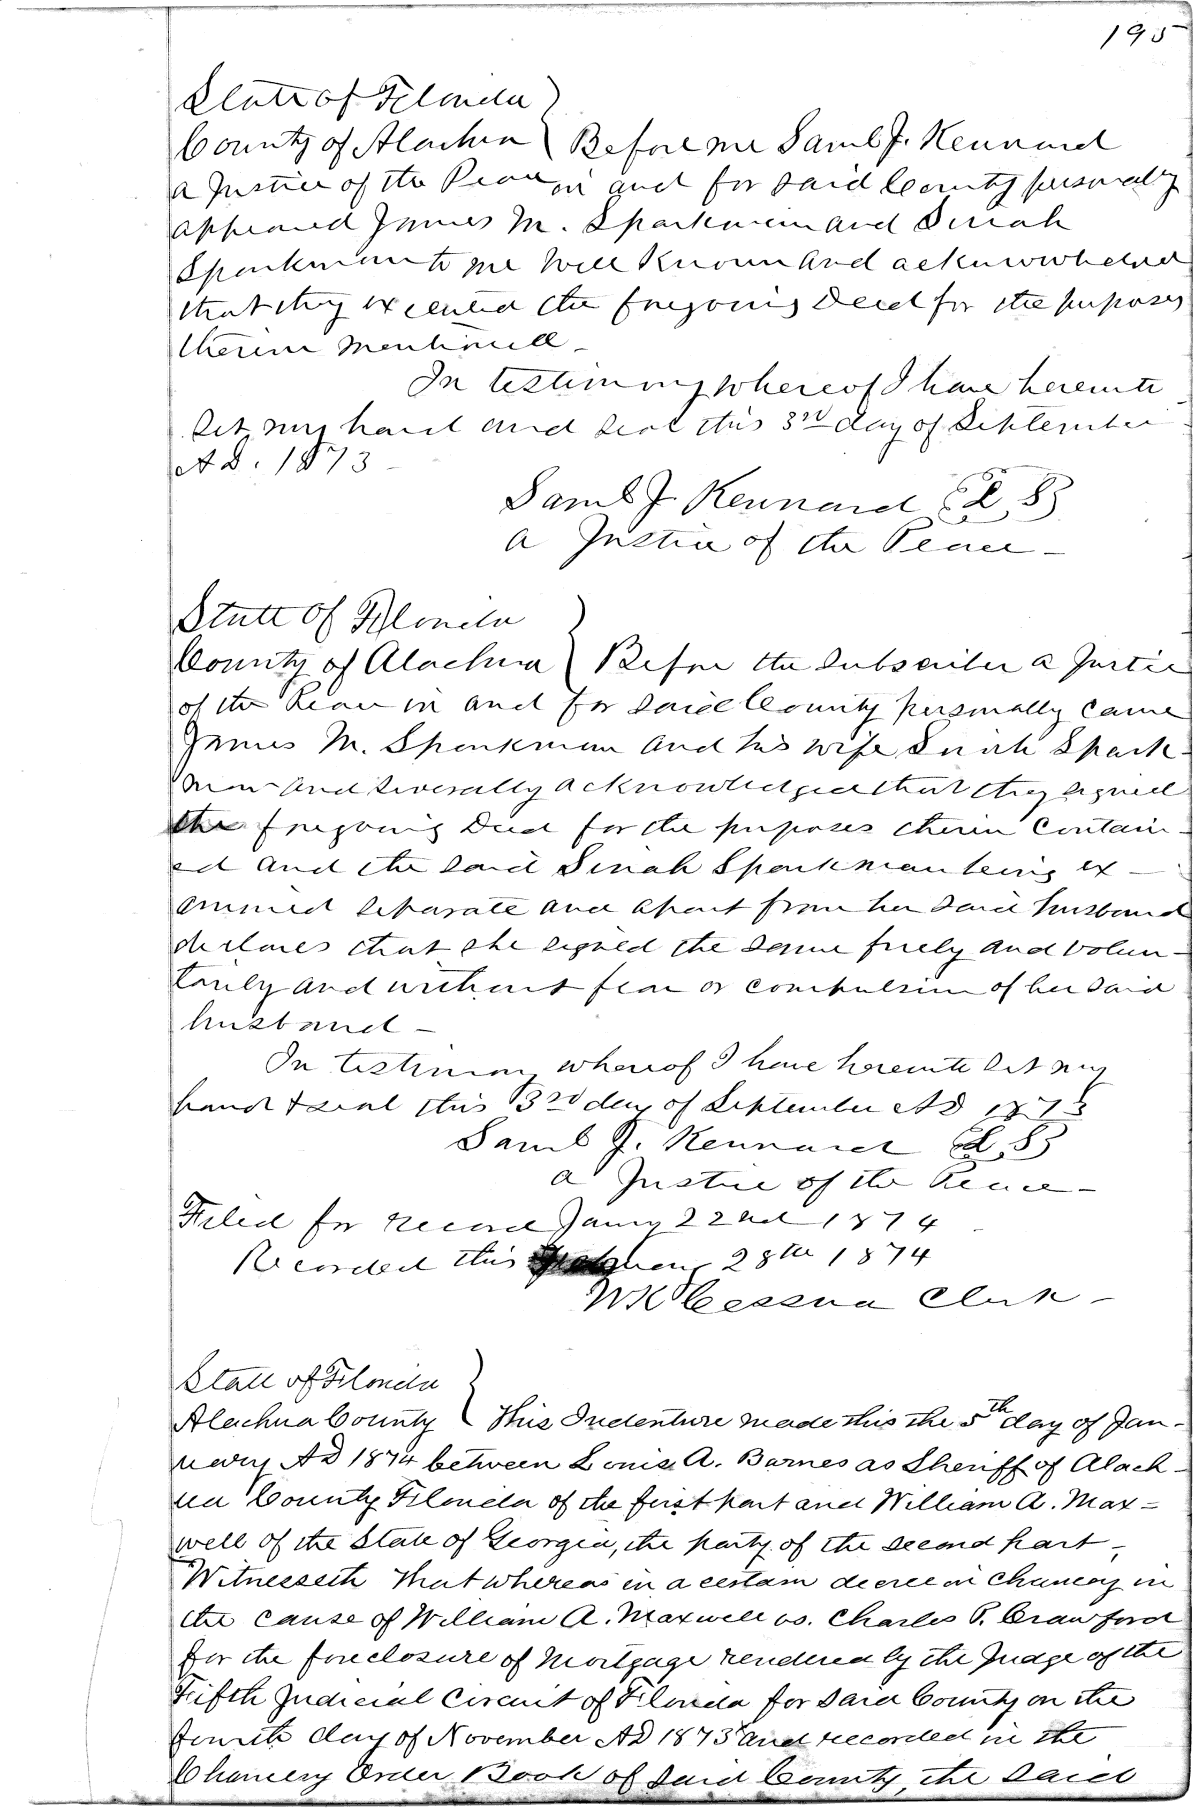 195
State of Florida
County of Alachua } Before me Saml J. Kennard
a Justice of the Peace in and for said County personally
appeared James M. Sparkman and Sinah
Sparkman to me well known and acknowwheded
that they executed the foregoing Deed for the puposes
therein mentioned -
In testimony whereof I have hereunto
set my hand and seal this 3rd day of September
AD. 1873 -
Saml J. Kennard {L.S}
a Justice of the Peace -
State of Florida
County of Alachua } Before the subscriber a Justice
of the Peace in and for said County personally came
James M. Sparkman and his wife Sinah Spark-
man and severally acknowledged that they signed
the foregoing Deed for the puposes therein contain-
ed and the said Sinah Sparkman being ex-
amined separate and apart from her said husband
declares that she signed the same freely and volun-
tarily and without fear or compulsion of her said
husband -
In testimony whereof I have hereunto set my
hand & seal this 3rd day of September AD 1873
Saml J. Kennard {L.S}
a Justice of the Peace -
Filed for record Jany 22nd 1874
Recorded this 28th 1874
WK Cessna Clerk -
State of Florida
Alachua County } This Indenture made this the 5th day of Jan-
uary AD 1874 between Louis A. Barnes as Sheriff of Alach-
ua County Florida of the first part and William A. Max-
well of the State of Georgia, the party of the second part,
Witnesseth That whereas in a certain decree in chancery in
the cause of William A. Maxwell vs. Charles P. Crawford
for the foreclosure of Mortgage rendered by the Judge of the
Fifth Judicial Circuit of Florida for said County on the
fourth day of November AD 1873 and recorded in the
Chancery Order Book of said County, the said